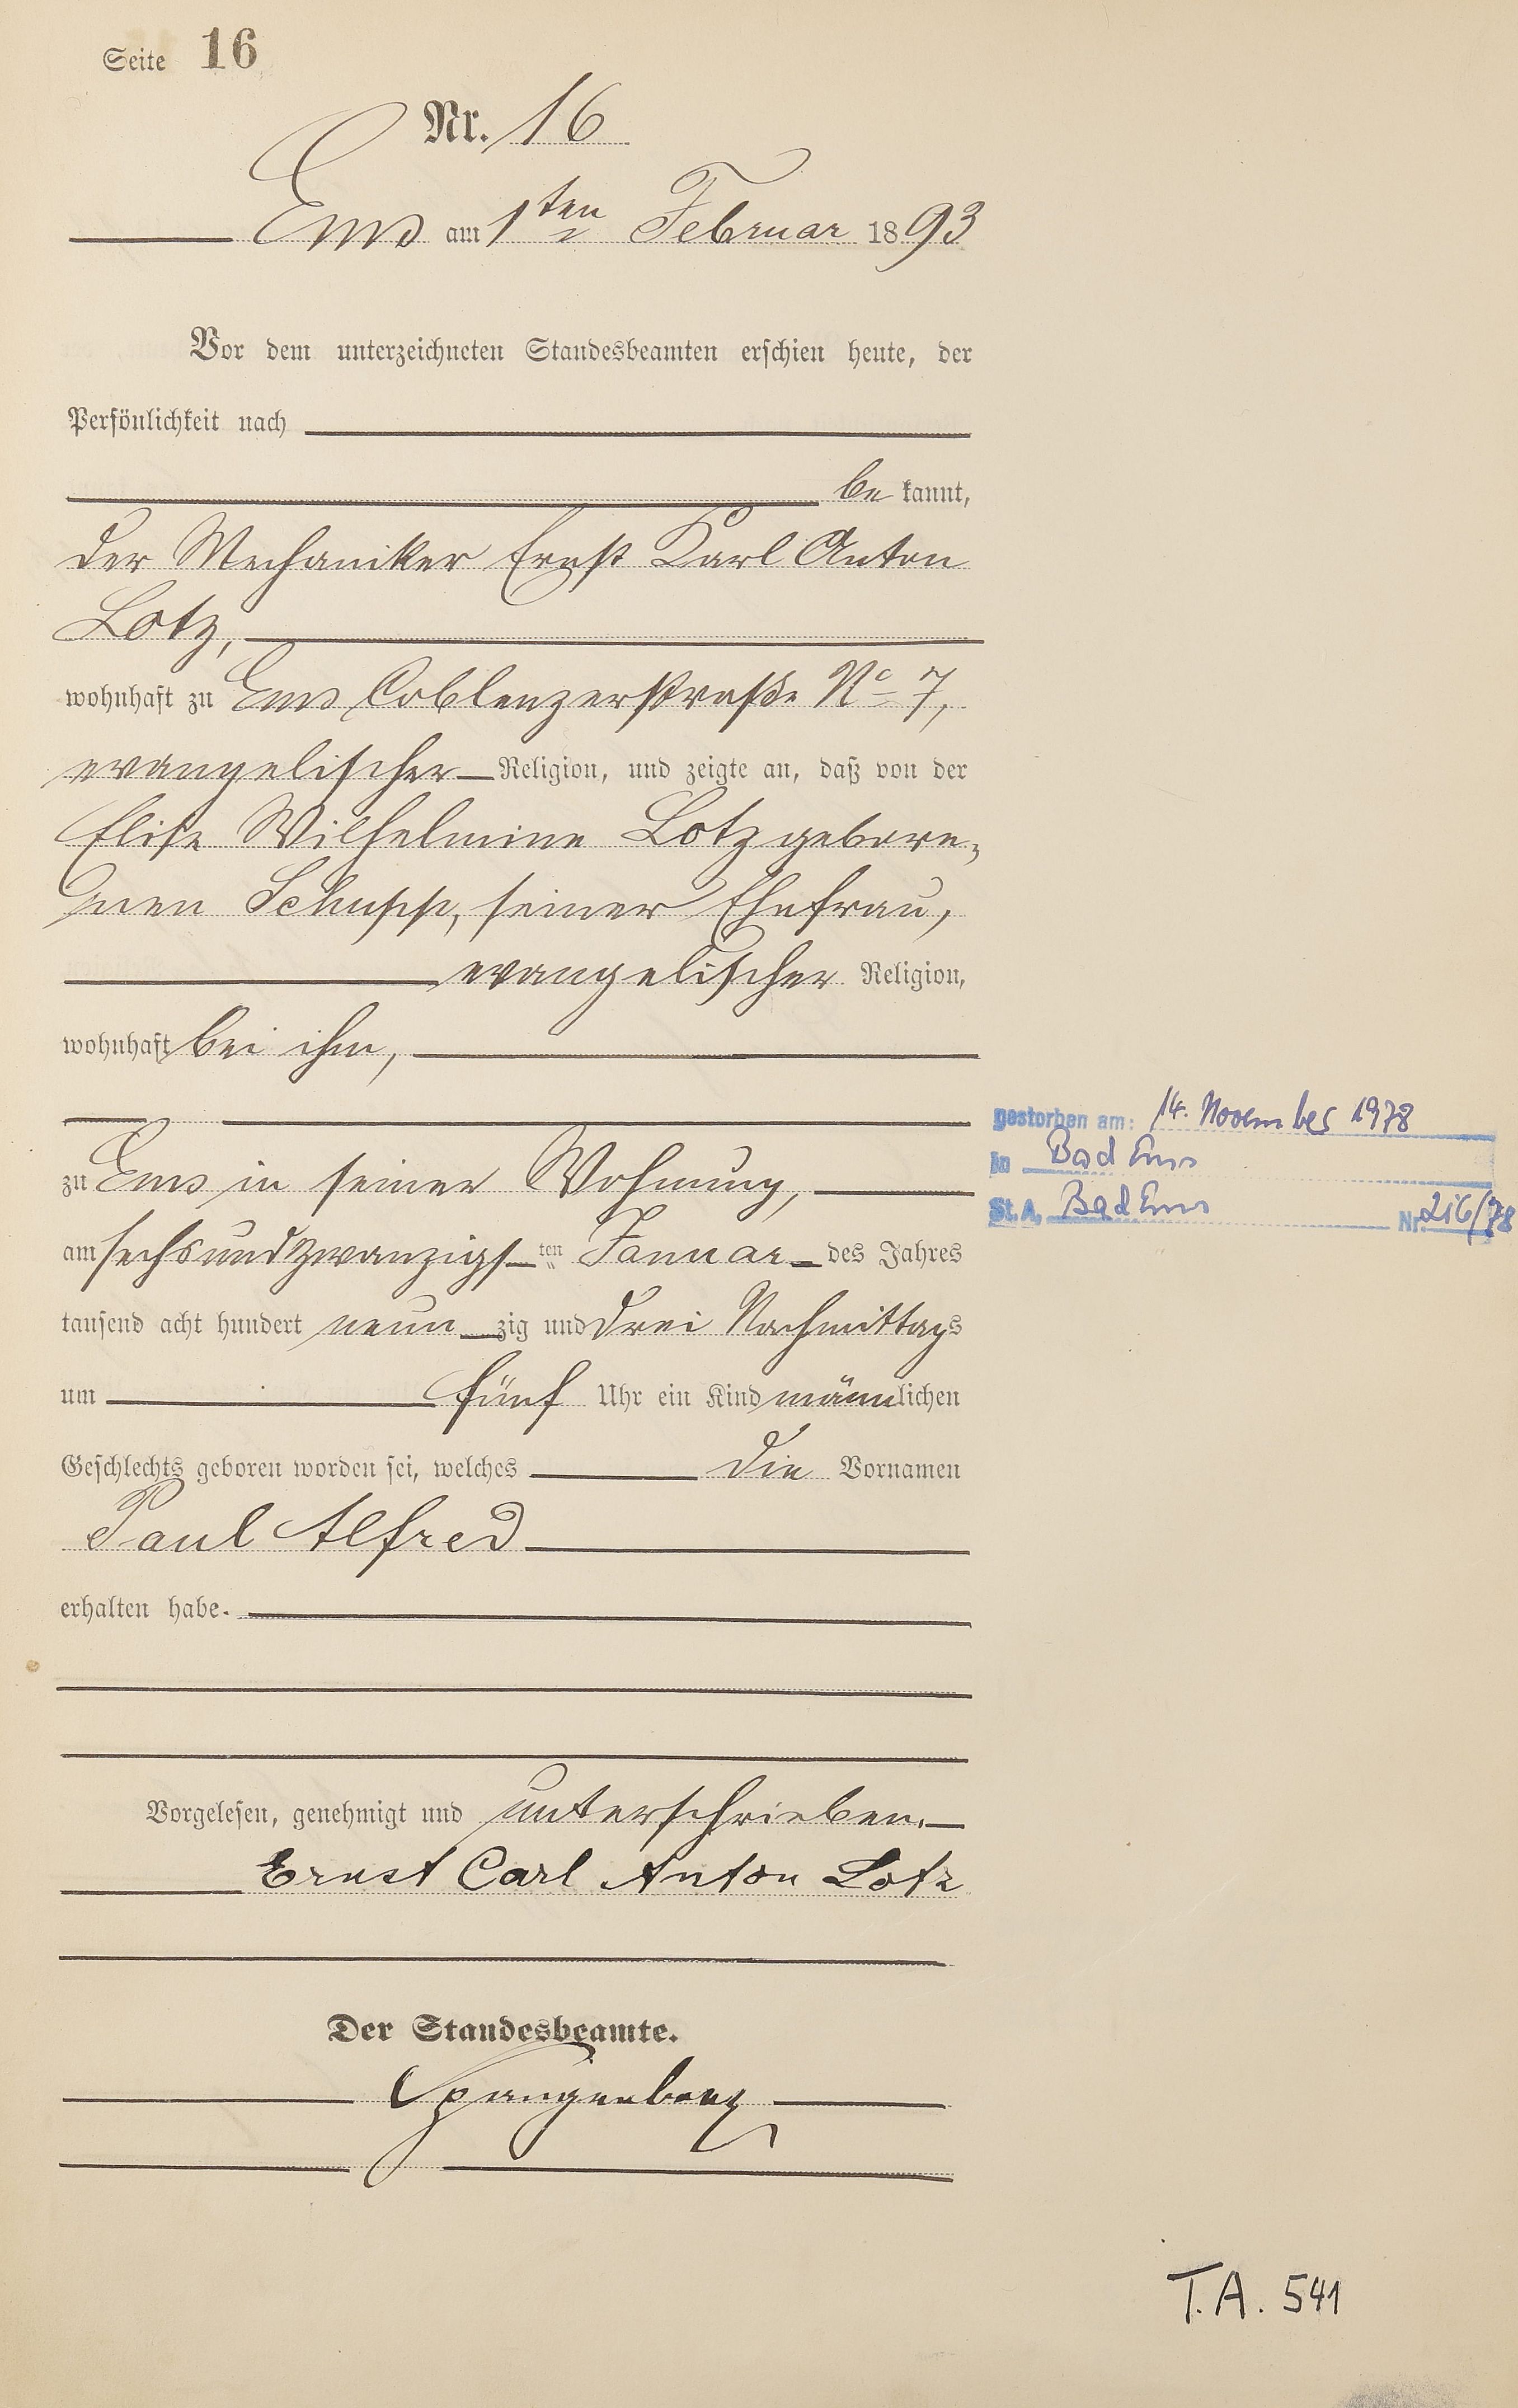 Seite 16
Nr. 16
Ems am 1ten Februar 1893
Vor dem unterzeichneten Standesbeamten erschien heute, der
Persönlichkeit nach
be kannt,
der Mechaniker Ernst Karl Anton
Lotz,
wohnhaft zu Ems Coblenzerstraße No 7,
evangelischer Religion, und zeigte an, daß von der
Elise Wilhelmine Lotz gebore-
nen Schupp, seiner Ehefrau,
evangelischer Religion,
wohnhaft bei ihm,
zu Ems in seiner Wohnung,
am sechsundzwanzigsten Januar des Jahres
tausend acht hundert neunzig und drei Nachmittags
um fünf Uhr ein Kind männlichen
Geschlechts geboren worden sei, welches die Vornamen
Paul Alfred
erhalten habe.
Vorgelesen, genehmigt und unterschrieben.
Ernst Carl Anton Lotz
Der Standesbeamte.
Spangenberg
gestorben am: 14. November 1978
in Bad Ems
St.A. Bad Ems Nr. 216/78
T.A. 541